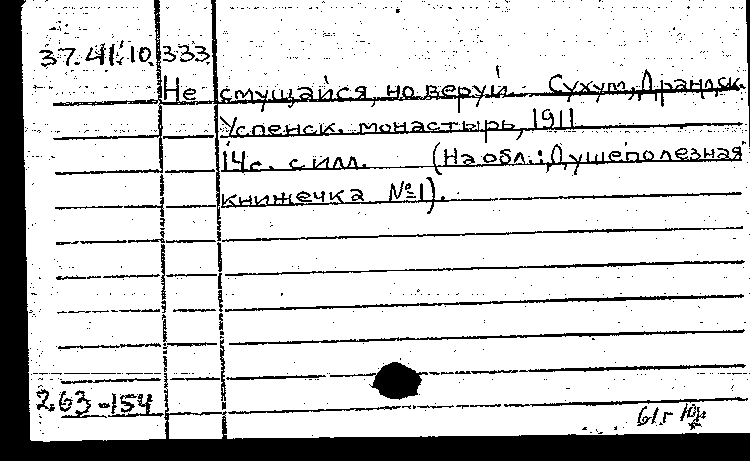 37.41.10.333
Не смущайся, но веруй. Сухум, Драндск.
Успенск. монастырь, 1911
14с. с илл. (На обл.: Душеполезная
книжечка №1).
2.63-154